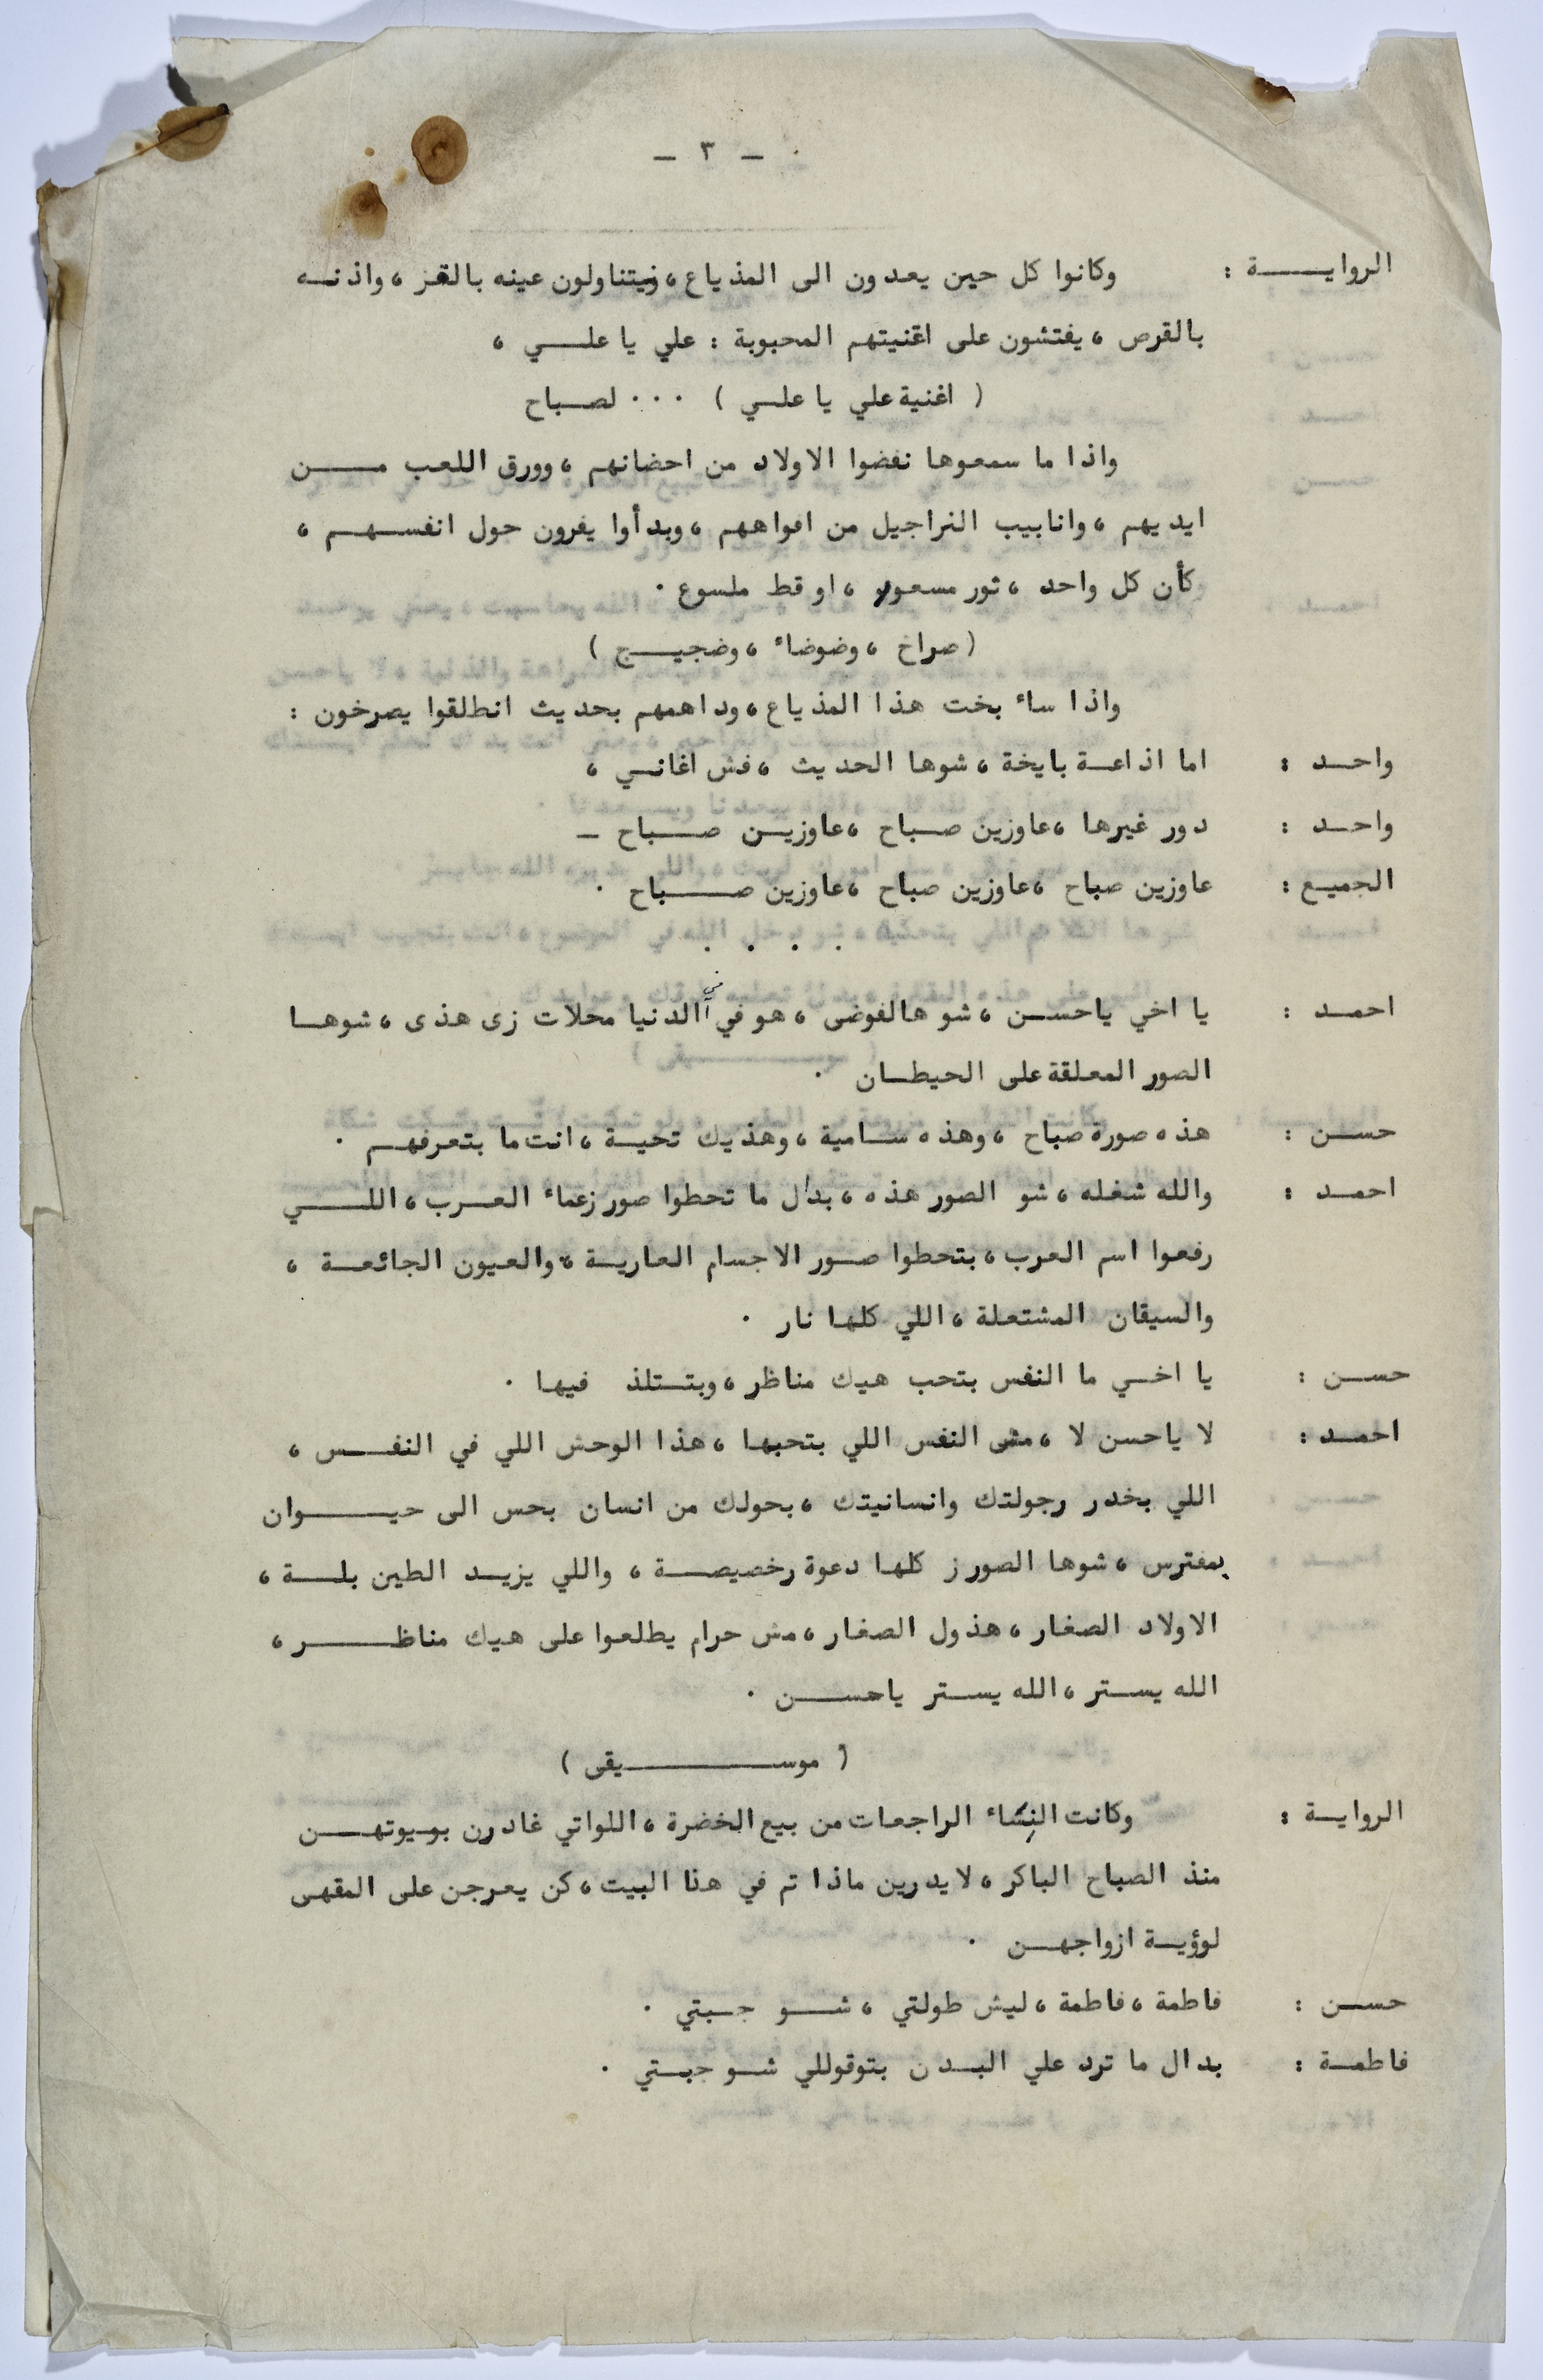 - ٣ -
الروايـــة : وكانوا كل حين يعدون الى المذياع ، فيتناولون عينه بالقز ، واذنـه
بالقرص ، يفتشون على اغنيتهم المحبوبة : علي يا علـــي ،
( اغنية علي يا علـي ) ٠٠٠ لصـباح
واذا ما سمعوها نفضوا الاولاد من احضانهم ، وورق اللعب مــــن
ايديهم ، وانابيب النراجيل من افواههم ، وبدأوا يفرون حول انفســهــم ،
كأن كل واحد ، ثور مسعور ، او قط ملسوع ٠
( صراخ ، وضوضاء ، وضجيــج )
واذا ساء بخت هذا المذياع ، وداهمهم بحديث انطلقوا يصرخون :
واحــد : اما اذاعـة بايخة ، شوها الحديث ، فش اغانـي ،
واحــد : دور غيرها ، عاوزين صـباح ، عاوزيـن صــباح -
الجميـع : عاوزين صباح ، عاوزين صباح ، عاوزين صـــباح ٠
٠ ٠ ٠ ٠
احمـد : يا اخي ياحسـن ، شو هالفوضى ، هو في في الدنيا محلات زى هذى ، شوهـا
الصور المعلقة على الحيطـان ٠
حســن : هذه صورة صباح ، وهذه ســامية ، وهذيك تحيـة ، انت ما بتعرفهـم ٠
احمـد : والله شغله ، شو الصور هذه ، بدال ما تحطوا صور زعماء العـرب ، اللــــي
رفعوا اسم العرب ، بتحطوا صـور الاجسام العاريـة ، والعيون الجائعـــة ،
والسيقان المشتعلة ، اللي كلهـا نار ٠
حســن : يا اخـي ما النفس بتحب هيك مناظر ، وبتـتلذ فيهـا ٠
احمـد : لا ياحسن لا ، مش النفس اللي بتحبهـا ، هذا الوحش اللي في النفــس ،
اللي بخدر رجولتك وانسانيتك ، بحولك من انسان بحس الى حيـــوان
بمفترس ، شوها الصور ز كلهـا دعوة رخصيصــة ، واللي يزيـد الطين بلــة ،
الاولاد الصغار ، هذول الصغار ، مش حرام يطلعوا على هيك مناظــــر ،
الله يســتر ، الله يســتر ياحســـن ٠
( موســــــيقى )
الروايـة : وكانت النساء الراجعـات من بيع الخضرة ، اللواتي غادرن بويوتهـــن
منذ الصباح الباكر ، لا يدرين ماذا تم في هذا البيت ، كن يعرجن على المقهـى
لوؤيـة ازواجهــن ٠
حســن : فاطمة ، فاطمة ، ليش طولتي ، شـــو جـبتي ٠
فاطمـة : بدال ما ترد علي البـدن بتوقوللي شــو جبـتي ٠